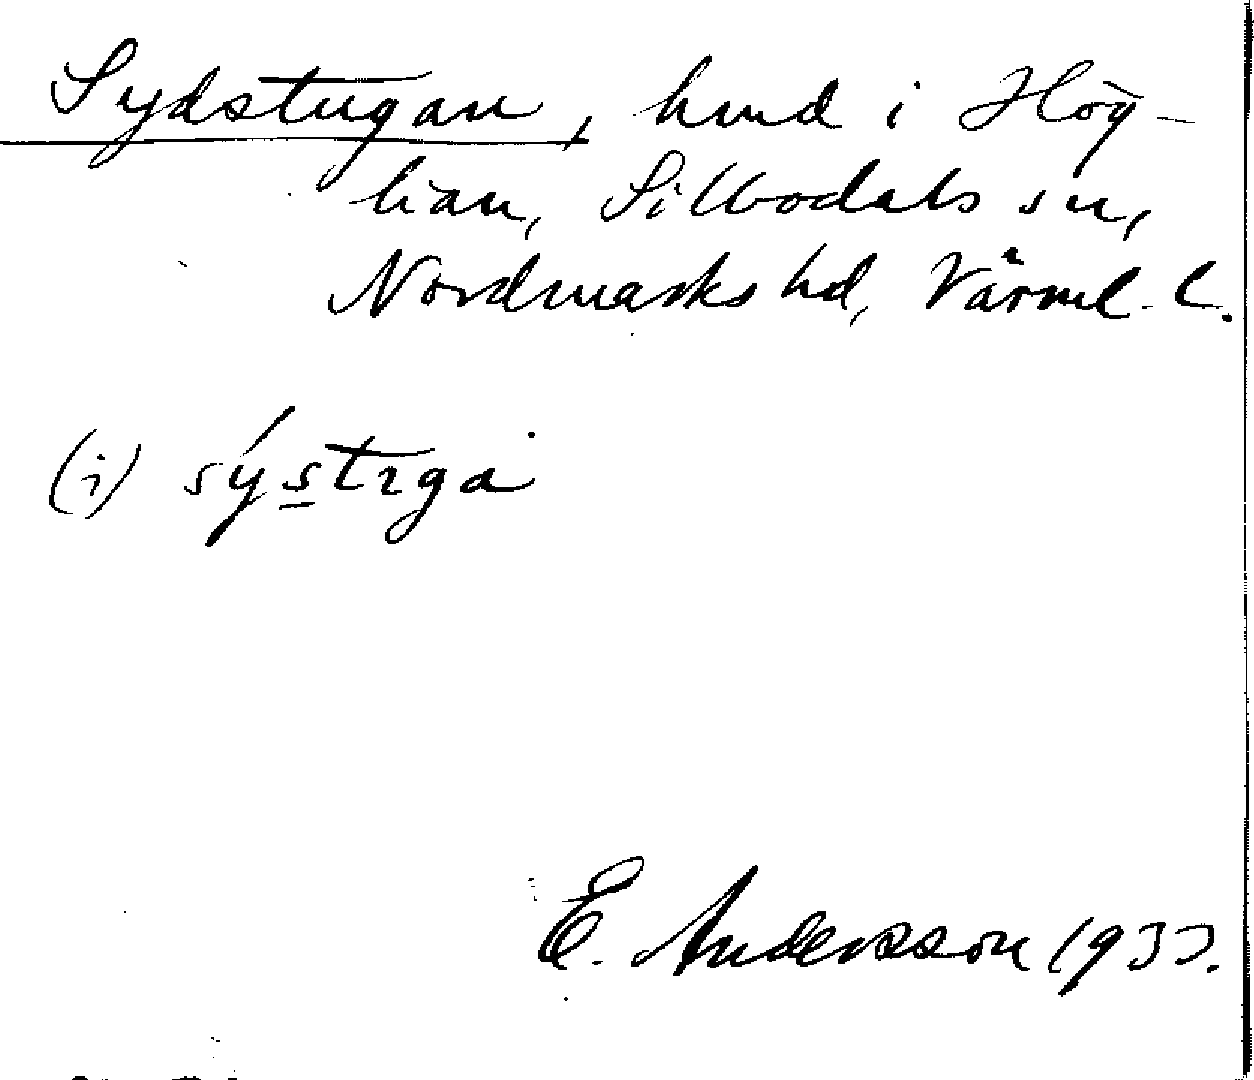 Sydstugan, hmd i Hög-
lian, Silbodals sn,
Nordmarks hd, Värml. l.
(i) sýstɩga
E. Andersson 1933.